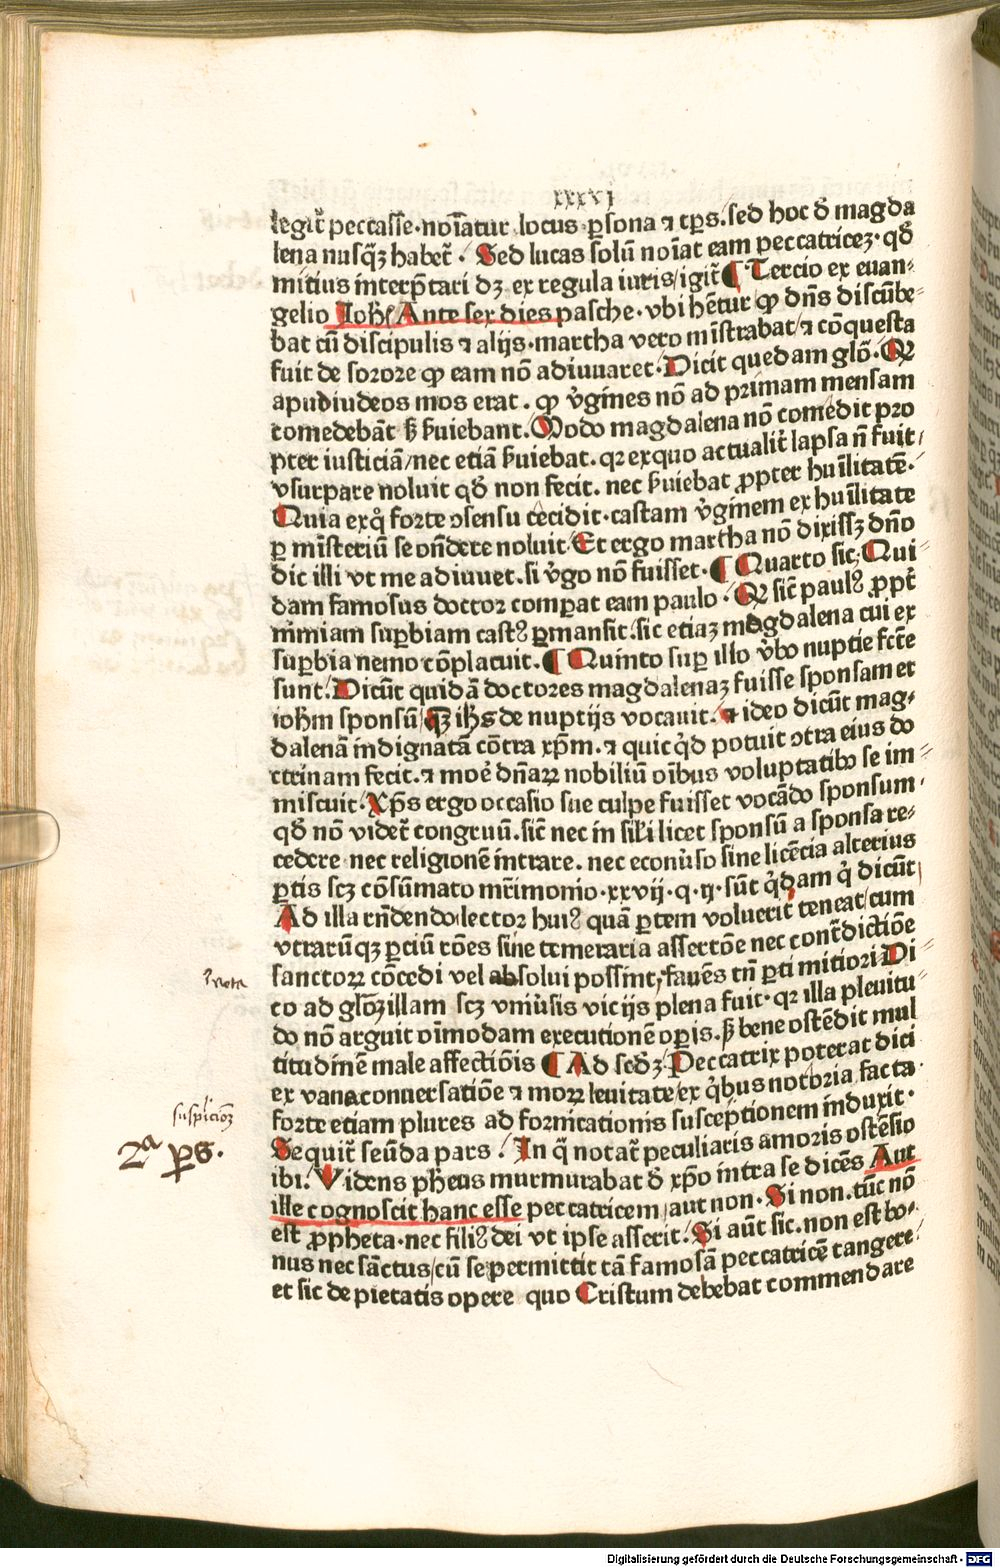 xxxvj
legit̄ peccasse·no̅iatur locus ꝑsona ⁊ tp̅s.sed hoc đ magda
lena nusq̅ꝫ habet̄. Sed lucas solū no̅iat eam peccatricez·qđ
mitius interp̅tari dꝫ ex regula iuris/igit̄ ¶ Tercio ex euan⸗
gelio Joh̅ Ante sex dies pasche·vbi hētur ꝙ dn̅s discūbe⸗
bat cū discipulis ⁊ alijs·martha vero mi̅strabat/⁊ cōquesta
fuit de sorore ꝙ eam nō adiuuaret·Dicit quedam glō·Qꝛ
apud iudeos mos erat . ꝙ v̓gines nō ad primam mensam
comedebāt sꝫ ẜuiebant. Modo magdalena nō comedit pro
pter iusticiā/nec etiā ẜuiebat.qꝛ ex quo actualit̄ lapsa n̄ fuit/
vsurpare noluit qđ non fecit. nec ẜuiebat ꝓpter hui̅litatē·
Quia ex q̇ forte ↄsensu cecidit·castam v̓ginem ex hui̅litate
ꝑ mi̅steriū se on̅dere noluit Et ergo martha nō dixissꝫ dn̅o
dic illi vt me adiuuet.si v̓go nō fuisset·¶ Quarto sic/Qui⸗
dam famosus doctor comparat eam paulo·Qꝛ sic̄ paulꝰ ꝓpt̄
nimiam suꝑbiam castꝰ ꝑmansit·sic etiaꝫ magdalena cui ex
suꝑbia nemo cōplacuit.¶ Quinto suꝑ illo v̓bo nuptie fc̅te
sunt·Dicūt quidā doctores magdalenaꝫ fuisse sponsam et
ioh̅m sponsū/ quē ih̅s de nuptijs vocauit. ⁊ ideo dicūt mag⸗
dalenā indignatā cōtra xp̅m.⁊ quicq̇d potuit ↄtra eius do
ctrinam fecit.⁊ moē dn̅aꝝ nobiliū oi̅bus voluptatibꝫ se im⸗
miscuit·Xp̅s ergo occasio sue culpe fuisset vocādo sponsum⸗
qđ nō videt̄ congruū.sic̄ nec in sil̅i licet sponsū a sponsa re⸗
cedere nec religionē intrare. nec econ̓uso sine licēcia alterius
ꝑtis scꝫ cōsūmato mr̅imonio·xxvij·q·ij·sūt q̇dam q̇ dicūt
Ad illa rn̅dendo lector huiꝰ quā ꝑtem voluerit teneat/cum
vtrarūqꝫ ꝑciū rōes sine temeraria assertōe nec contr̅dictiōe
sanctoꝝ cōcedi vel absolui possint/fauēs tn̅ ꝑti mitiori·Di⸗
co ad glōꝫ illam scꝫ vniu̓sis vicijs plena fuit·qꝛ illa plenitu⸗
do nō arguit oi̅modam executionē oꝑis.sꝫ bene ostēdit mul
titudinē male affectiōis ¶ Ad scd̅ꝫ Peccatrix poterat dici
ex vana conuersatiōe ⁊ moꝝ leuitate/ex q̇bus notoria facta·
forte etiam plures ad fornicationis susceptionem induxit·
Sequit̄ secūda pars·In q̄ notat̄ peculiaris amoris ostēsio
ibi·Videns ph̅eus murmurabat đ xp̅o intra se dicēs Aut
ille cognoscit hanc esse peccatricem/aut non·Si non.tūc nō
est ꝓpheta·nec filiꝰ dei vt ipse asserit·Si aūt sic.non est bo⸗
nus nec sāctus/cū se permittit tā famosā peccatricē tangere⸗
et sic de pietatis opere quo Cristum debebat commendare
Nota
suspicionꝫ
2ᵃ ꝑs.
Digitalisierung gefördert durch die Deutsche Forschungsgemeinschaft - DFG